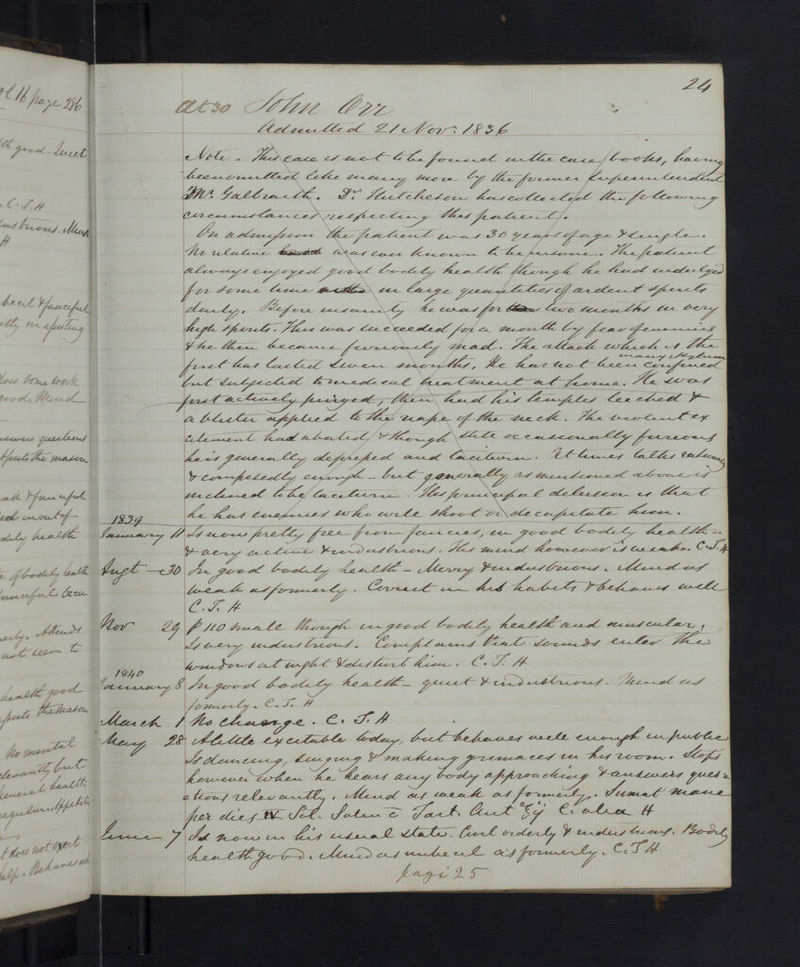 24
Æt 30 John Orr
Admitted 21 Nov: 1836
Note. This case is not to be found in the case books, having
been omitted like many more by the former Superintendent
Mr. Galbraith. Dr. Hutcheson has collected the following
circumstances respecting this patient.
On admission the patient was 30 years of age & single.
No relative was ever known to be insane. The patient
always enjoyed good bodily health though he had indulged
for some time in large quantities of ardent spirits
daily. Before insanity he was for two months in very
high spirits. This was succeeded for a month by fear of enemies
& he then became furiously mad. The attack which is the
first has lasted seven months. He has not been confined
in any Asylum
but subjected to medical treatment at home. He was
first actively purged, then had his temples leeched &
a blister applied to the nape of the neck. The violent ex
citement had abated & though still occasionally furious
he is generally depressed and taciturn. At times talks
& composedly enough - but generally as mentioned above is
inclined to be taciturn. His principal delusion is that
he has enemies who will shoot or decapitate him.
1839
January 11 Is now pretty free from fancies, in good bodily health -
& very active & industrious. His mind however is weak. C.T.H
Augt - 30 In good bodily health - Merry & industrious. Mind as
weak as formerly. Correct in his habits & behaves well
C.T.H
Nov 29 P 110 small though in good bodily health and muscular.
Is very industrious. Complains that sounds enter the
windows at night & disturb him. C.T.H
1840
January 8 In good bodily health - quiet & industrious. Mind as
formerly. C.T.H
March 1 No change. C.T.H
May 28 A little excitable today, but behaves well enough in public
Is dancing, singing & making grimaces in his room. Stops
however when he hears any body approaching & answers ques=
tions relevantly. Mind as weak as formerly. Sumat mane
per dies Sol. Salin c Tart. Ant H
June 7 Is now in his usual state. Civil orderly & industrious. Bodily
health good. Mind as imbecile as formerly. C.T.H
page 25
page 286
good. Quiet
C.T.H
industrious. Mind
H
& fanciful
Does some work
good. Mind
questions
the mason
& fanciful
bodily health
of bodily health
Attends
not seem to
health good
the mason
No mental
but
general health
regular. Appetite
does not exert
Behaves